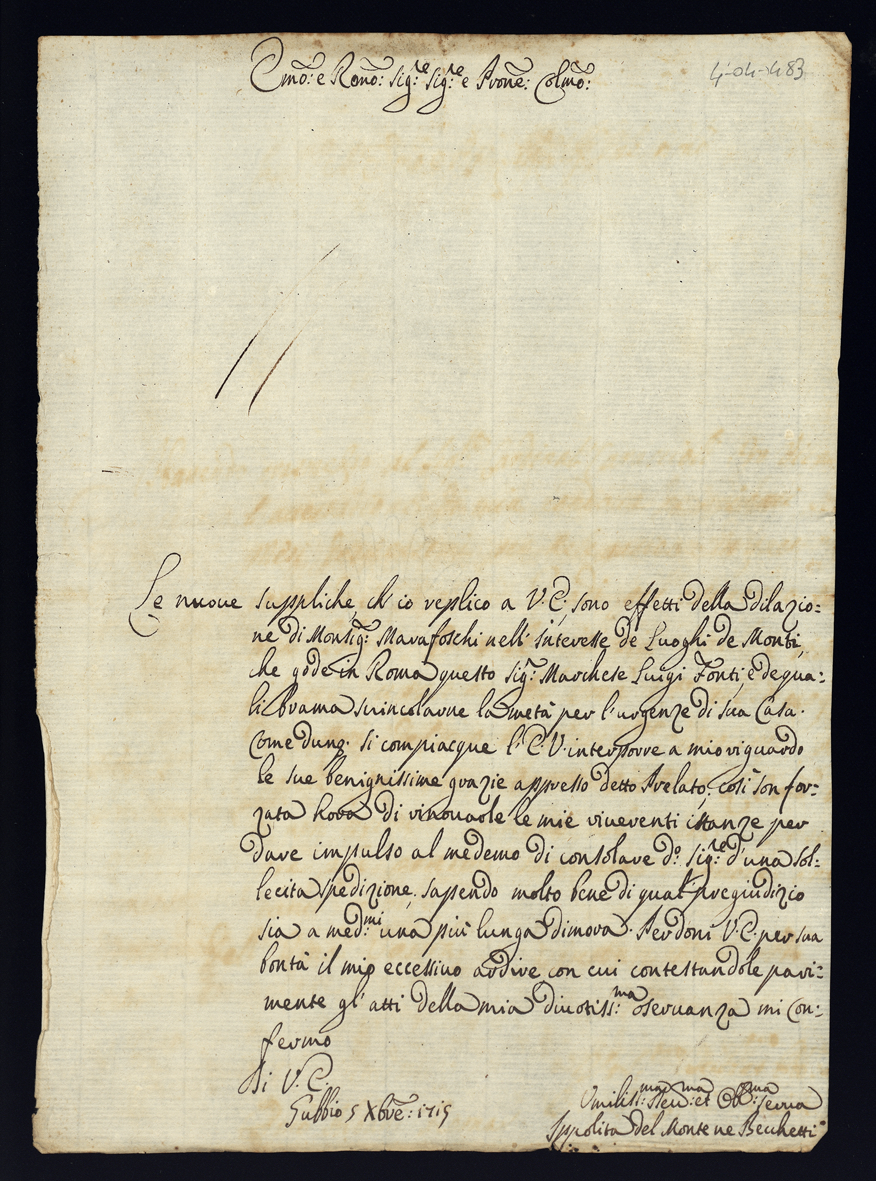 4-04-483
Emo: e Rono: Sig:re Sig:re e Prone: Colmo:
Le nuove suppliche, ch'io replico a V.E., sono effetti della dilazio=
ne di Monsig:r Marafoschi nell'interesse de Luoghi de Monti,
che gode in Roma questo Sig:r Marchese Luigi Fonti, e de qua=
li brama svincolarne la metà per l'urgenze di sua Casa.
Come dunq: si compiacque l'E.V. interporre a mio riguardo
le sue benignissime grazie appresso detto Prelato, così son for=
zata hora di rinovarle le mie riverenti istanze per
dare impulso al medemo di consolare d:o Sig:re d'una sol=
lecita spedizione, sapendo molto bene di qual pregiudizio
sia a med:mi una più lunga dimora. Perdoni V.E. per sua
bontà il mio eccessivo ardire con cui contestandole pari=
mente gl'atti della mia divotiss:ma osservanza mi con=
fermo
Di V.E.
Gubbio 5 Xbre: 1715
Umiliss:ma Dev:ma et Obb:ma serva
Ippolita del Monte ne Becchetti